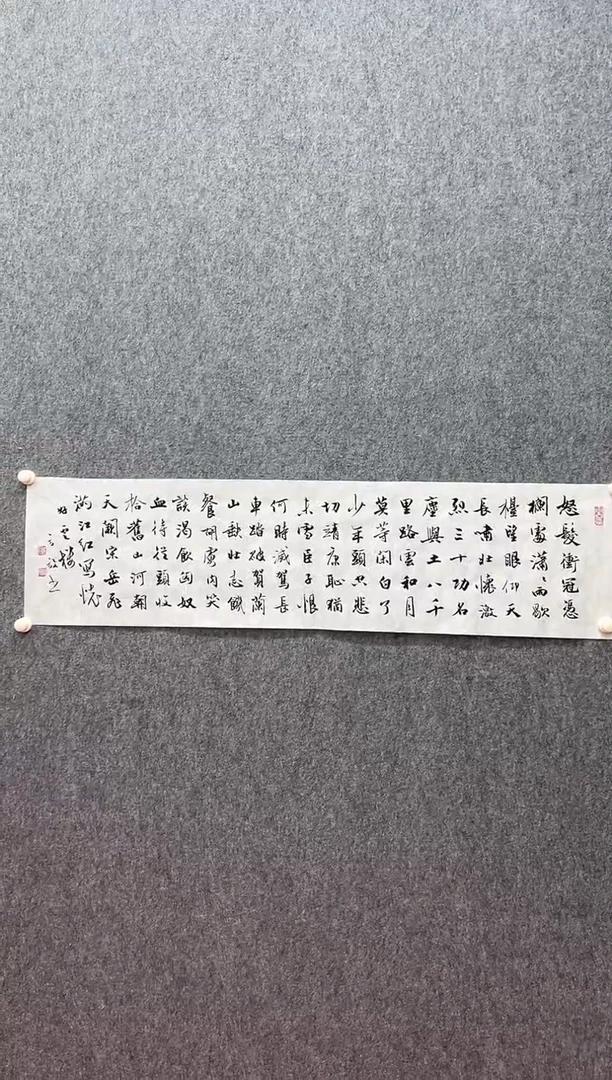 怒髮衝冠憑
欄處瀟瀟雨歇
擡望眼仰天
長嘯壯懷激
烈三十功名
塵與土八千
里路雲和月
莫等閑白了
少年頭空悲
切靖康恥猶
未雪臣子恨
何時滅駕長
車踏破賀蘭
山缺壯志饑
餐胡虜肉笑
談渴飲匈奴
血待從頭收
拾舊山河朝
天闕宋岳飛
滿江紅寫懷
雲樓